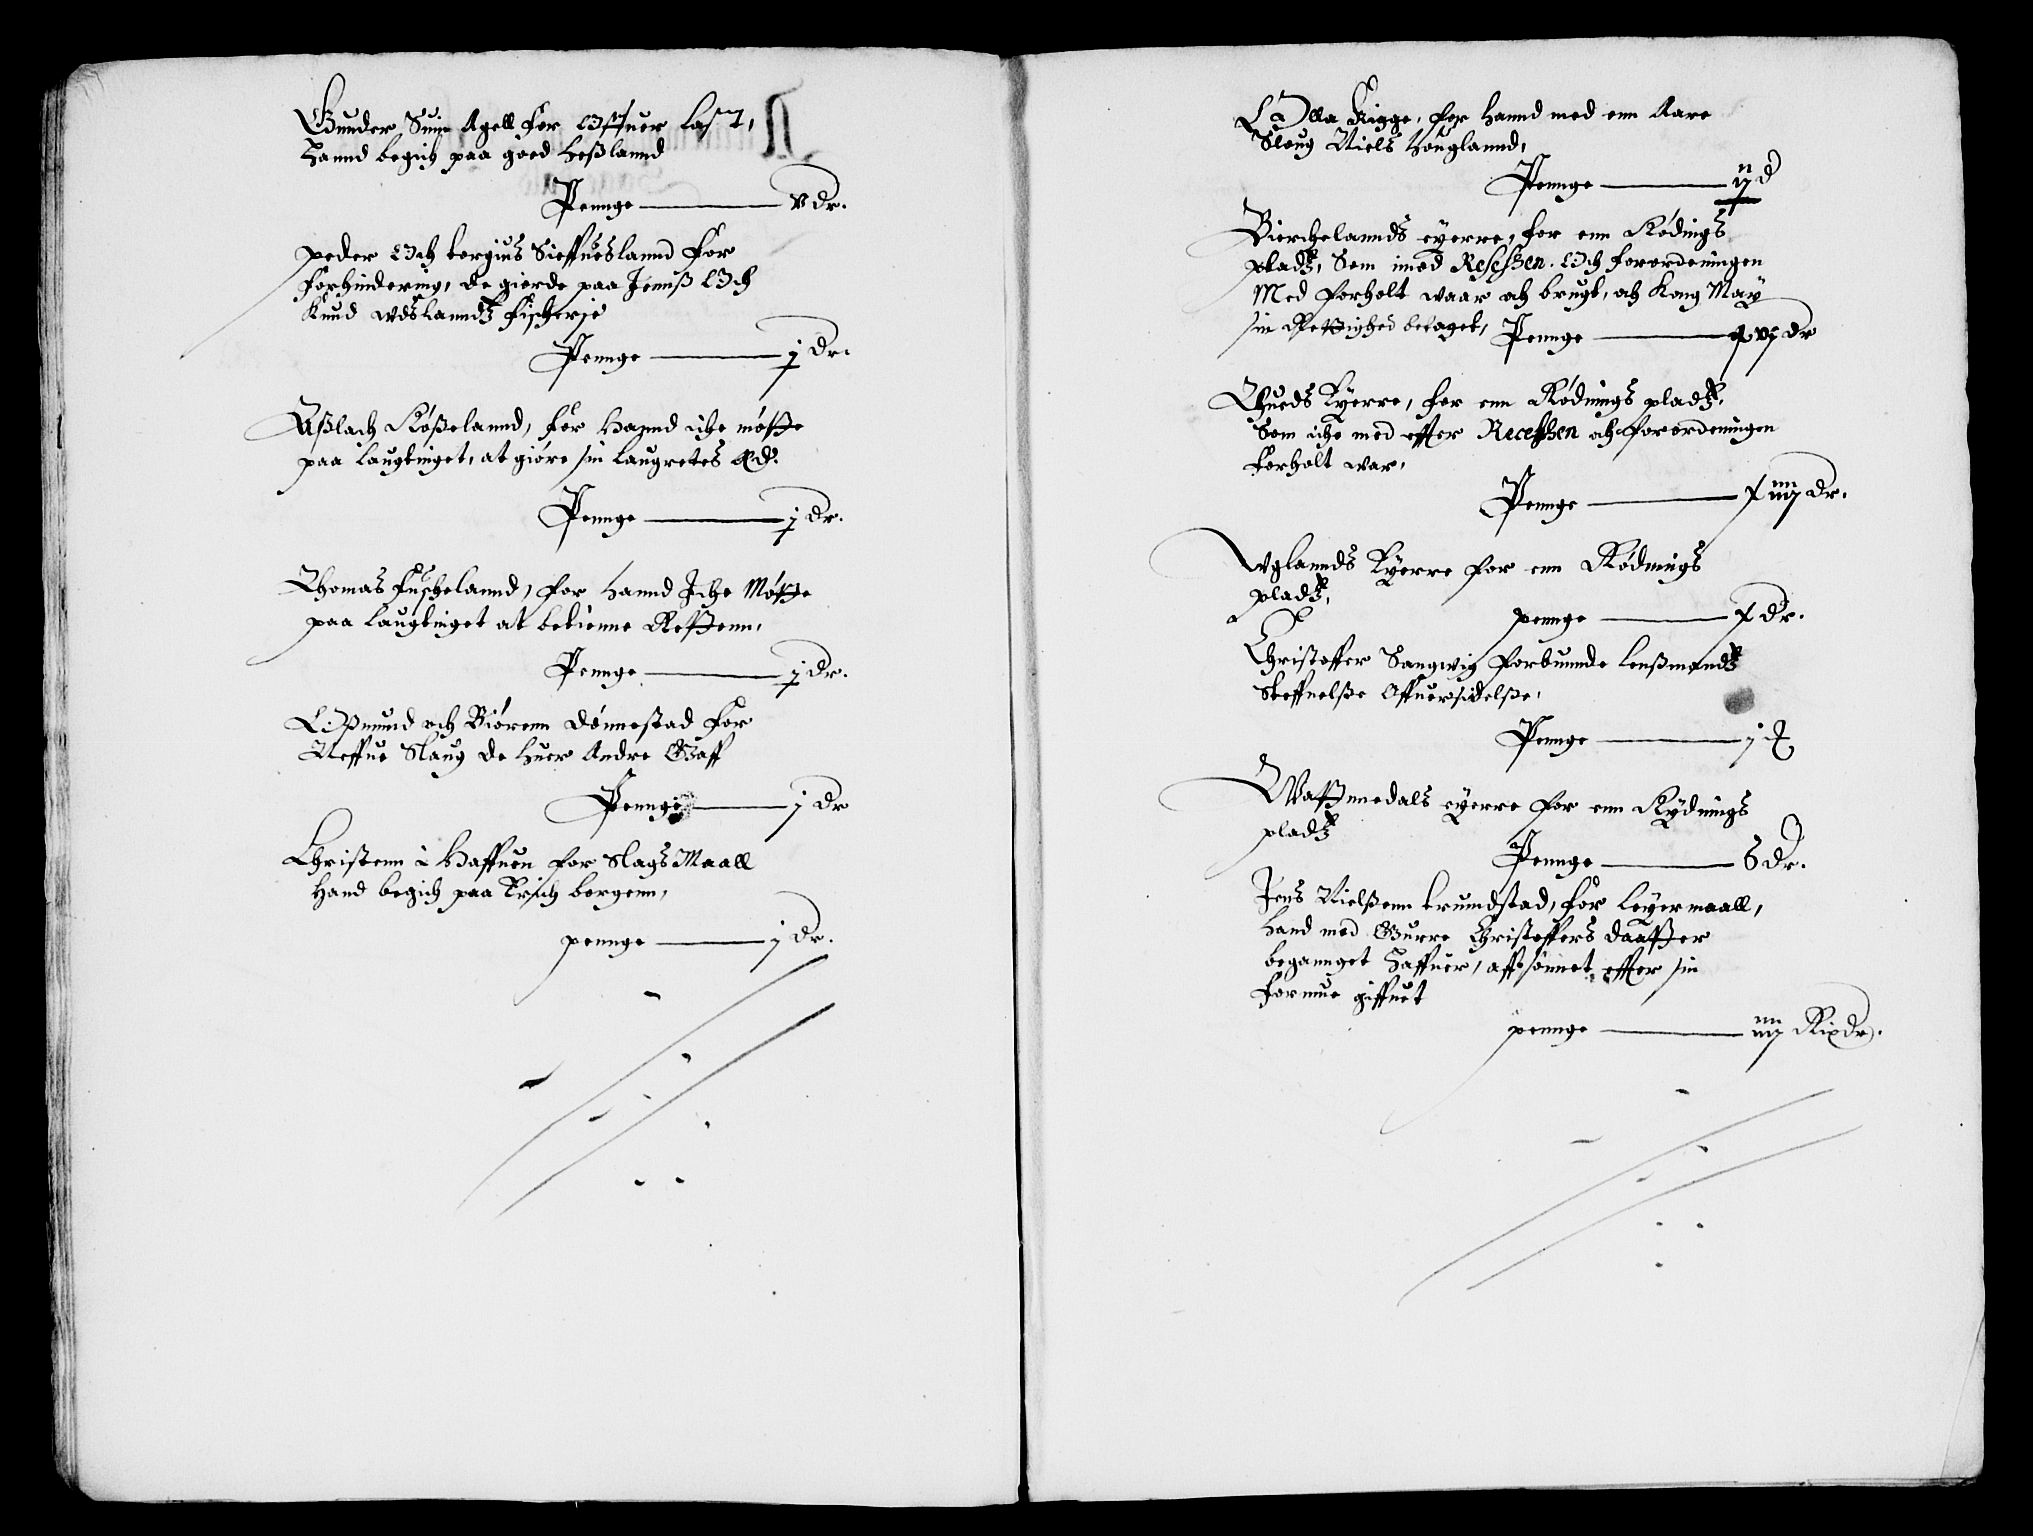 Gunder Suin Agell for Offuer last,
Hannd begich paa goed Heßlannd
Pennge — v dr.
peder Och torgius Sieffueslannd for
forhindering, de giorde paa Jenuß Och
Knud Vdslanndz fischerje
Pennge — j dr.
Aßlach Røßelannd, for Hannd iche møtte
paa laugtinget, at giøre sin laugrettes Æd.
Pennge — j dr.
Thomas fuschelannd, for Hannd Iche Møtte
paa laugtinget at betienne Retten,
Pennge — j dr.
Oßmund och Biørenn Dønnestad for
Neffue Slaug de huer Andre Gaff
Pennge — j dr
Christenn i Haffuen for Slags Maall
Hand begich paa Erich bergenn,
pennge — j dr.
Olla Rigge, for Hannd med enn Aare
Sloug Niels Houglannd,
Pennge — ij d
Bierchelannds eyerre, for enn Rødings
pladtz, Som imod Resessen. Och forordeningen
Med forholt waar och brugt, och Kong May
sin Rettighed betaget, Pennge — xvj dr
Thueds Eyerre, for enn Rødnings pladtz,
Som iche med effter Recessen och forordeningen
forholt war,
Pennge — x iiij dr.
Vglannds Eyerre for enn Rødnings
pladtz,
pennge — x dr.
Christoffer Sangwig forbunnde lenßmandtz
Steffnelße Offuersidelße,
Pennge — j
Wattnedals eyerre for enn Rydnings
pladtz
Pennge — 6 dr.
Jens Nielßenn trumdstad, for leyermaall,
Hand med Gurre Christoffers daatter
begannget Haffuer, affsonnet effter sin
formue giffuet
pennge — iiij Rixdr.